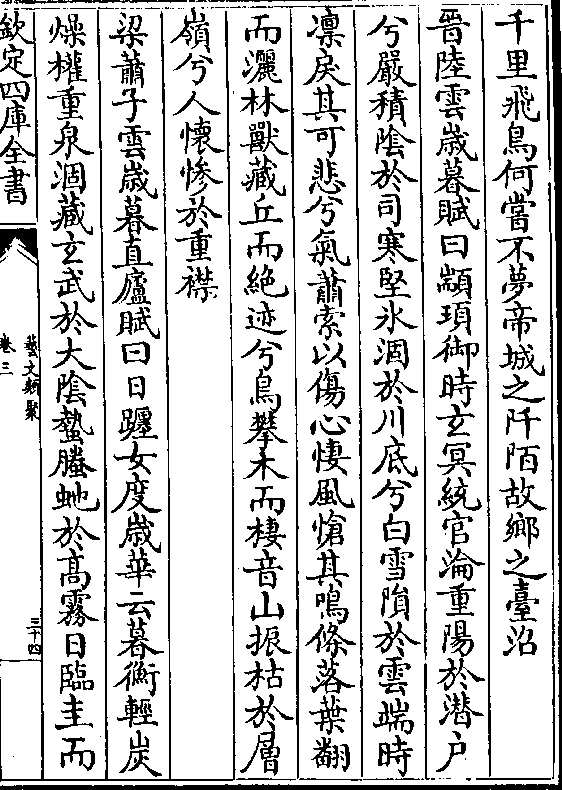 千里飛鳥何當不夢帝城之阡陌故鄉之臺沼
晉陸雲嵗暮賦曰顓頊御時玄冥統官淪重陽於潜户
兮嚴積陰於司寒堅氷涸於川底兮白雪隕於雲端時
凛戾其可悲兮氣蕭索以傷心悽風愴其鳴條落葉翻
而灑林獸藏丘而絶迹兮鳥攀木而棲音山振枯於層
嶺兮人懷慘於重襟
梁蕭子雲嵗暮直廬賦曰日躔女度嵗華云暮衡輕炭
燥權重泉涸藏玄武於大陰蟄螣虵於髙霧日臨圭而
欽定四庫全書
藝文類聚
卷三
三十四